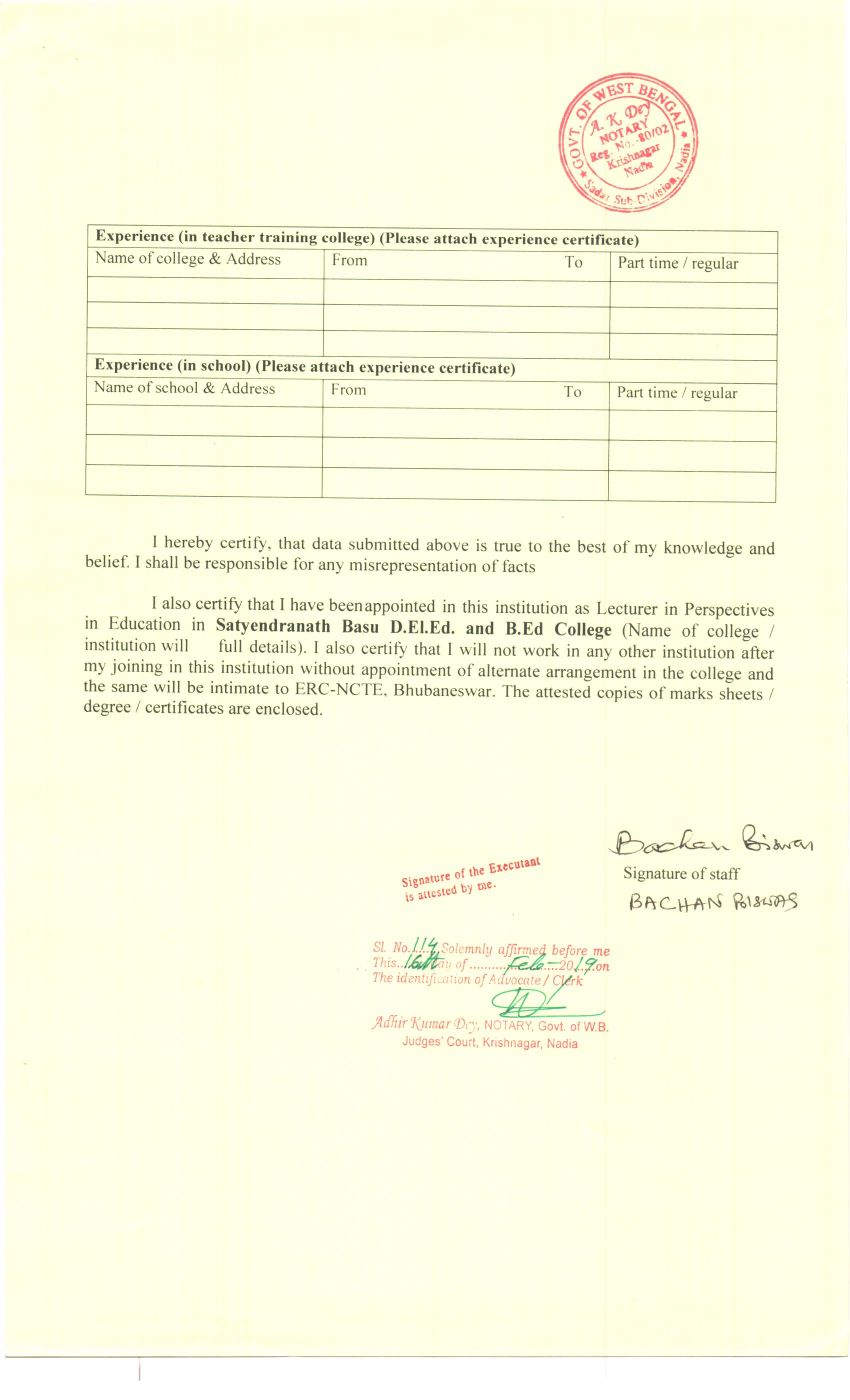 GOVT. OF WEST BENGAL
A. K. Dey
NOTARY
Reg. No.-80/02
Krishnagar
Nadia
Sadar Sub-Division, Nadia
Experience (in teacher training college) (Please attach experience certificate)
Name of college & Address From To Part time / regular
Experience (in school) (Please attach experience certificate)
Name of school & Address From To Part time / regular
I hereby certify, that data submitted above is true to the best of my knowledge and
belief. I shall be responsible for any misrepresentation of facts
I also certify that I have been appointed in this institution as Lecturer in Perspectives
in Education in Satyendranath Basu D.El.Ed. and B.Ed College (Name of college /
institution will full details). I also certify that I will not work in any other institution after
my joining in this institution without appointment of alternate arrangement in the college and
the same will be intimate to ERC-NCTE, Bhubaneswar. The attested copies of marks sheets /
degree / certificates are enclosed.
Bachan Biswas
Signature of staff
BACHAN BISWAS
Signature of the Executant
is attested by me.
Sl. No. 114 Solemnly affirmed before me
This 16th day of Feb 2019 on
The identification of Advocate / Clerk
Adhir Kumar Dey, NOTARY, Govt. of W.B.
Judges' Court, Krishnagar, Nadia